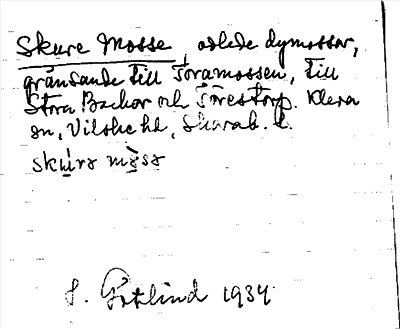 Skure Mosse, odlade dymossar,
gränsande till Toramossen, till
Stora Backor och Torestorp. Kleva
sn, Vilske hd, Skarab. l.
skùrə mòsə
S. Götlind 1934